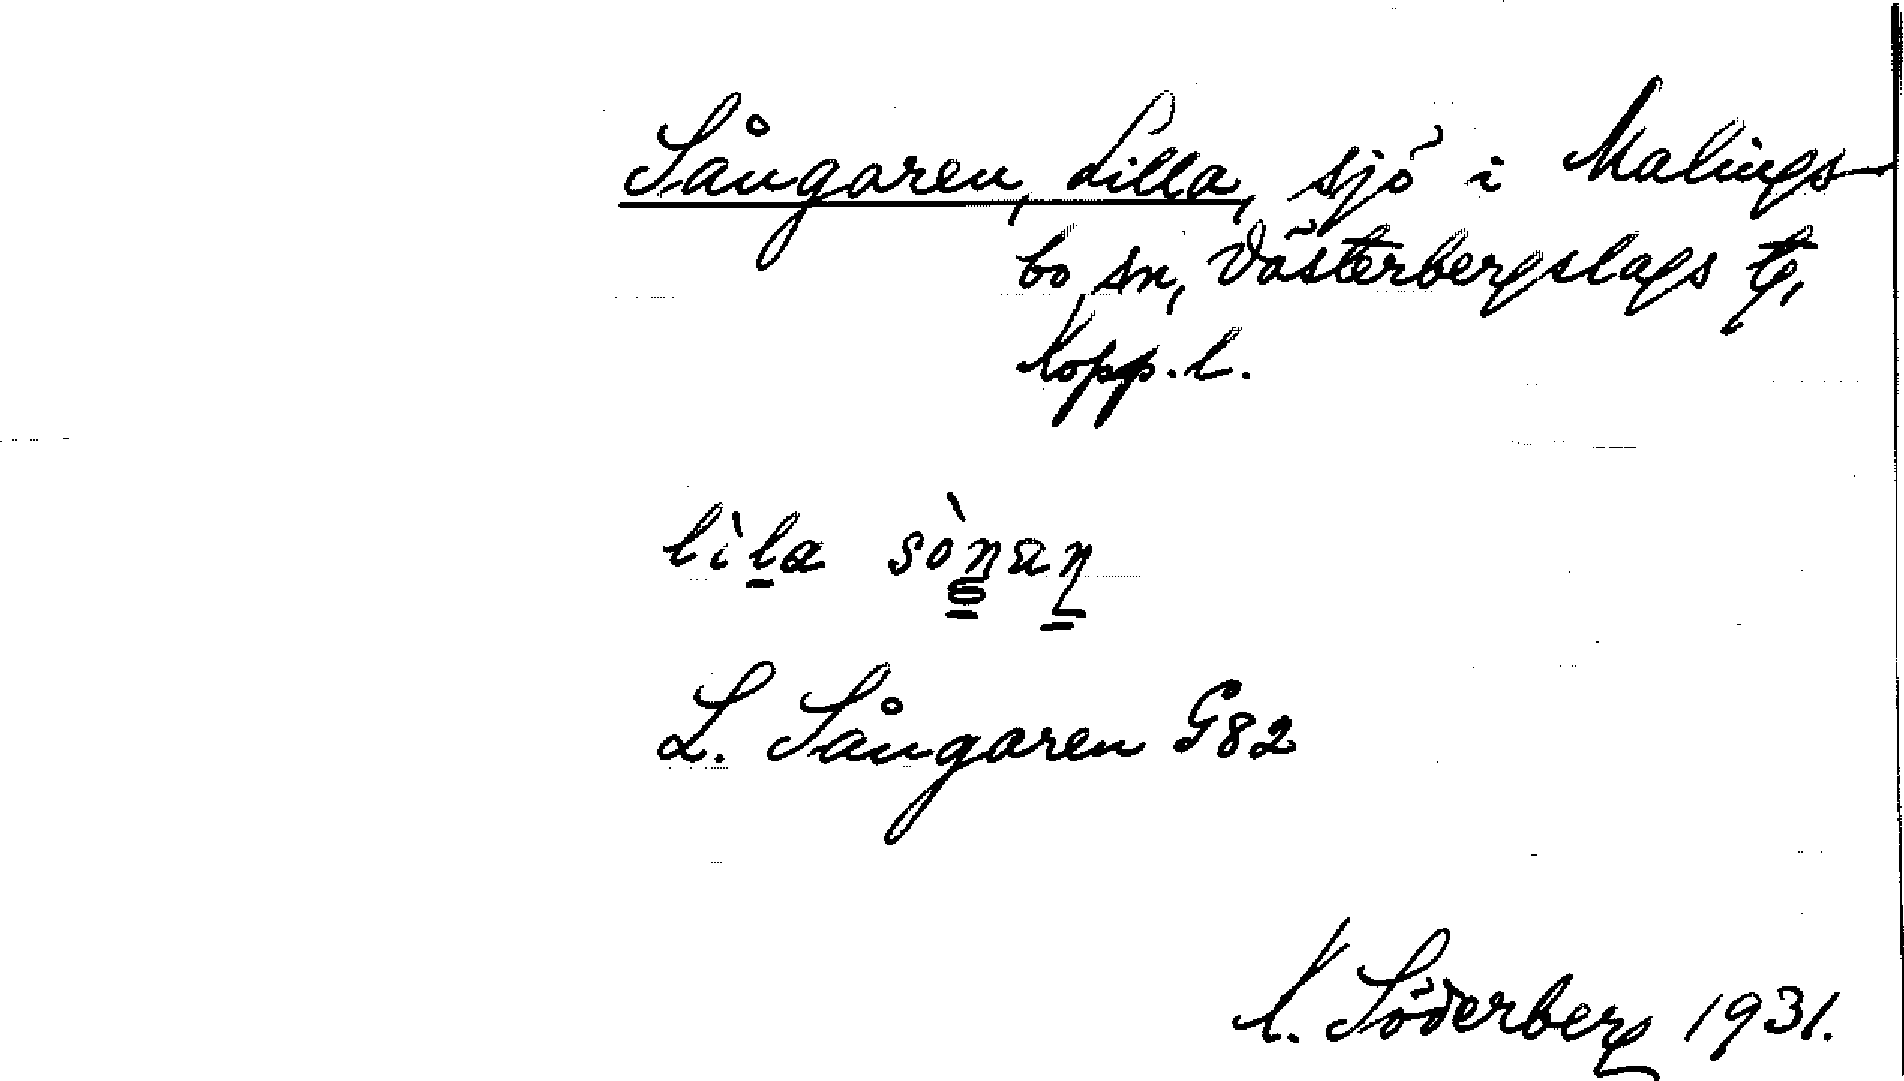 Sångaren, Lilla, sjö i Malings-
bo sn, Västerbergslags tg,
Kopp. l.
lìla sòŋan
L. Sångaren G82
K. Söderberg 1931.